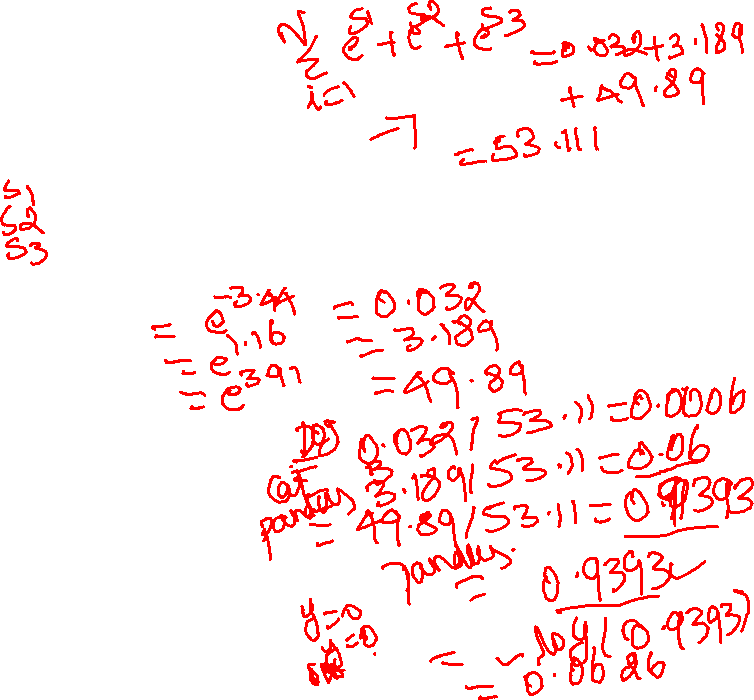 N
Σ e^S1 + e^S2 + e^S3 = 0.032 + 3.189
i=1
+ 49.89
= 53.111
S1
S2
S3
= e^-3.44 = 0.032
= e^1.16 = 3.189
= e^3.91 = 49.89
Dog 0.032 / 53.11 = 0.0006
cat 3.189 / 53.11 = 0.06
pandas = 49.89 / 53.11 = 0.9393
pandas.
0.9393
y=0
y=0.
= -log(0.9393)
= 0.0626